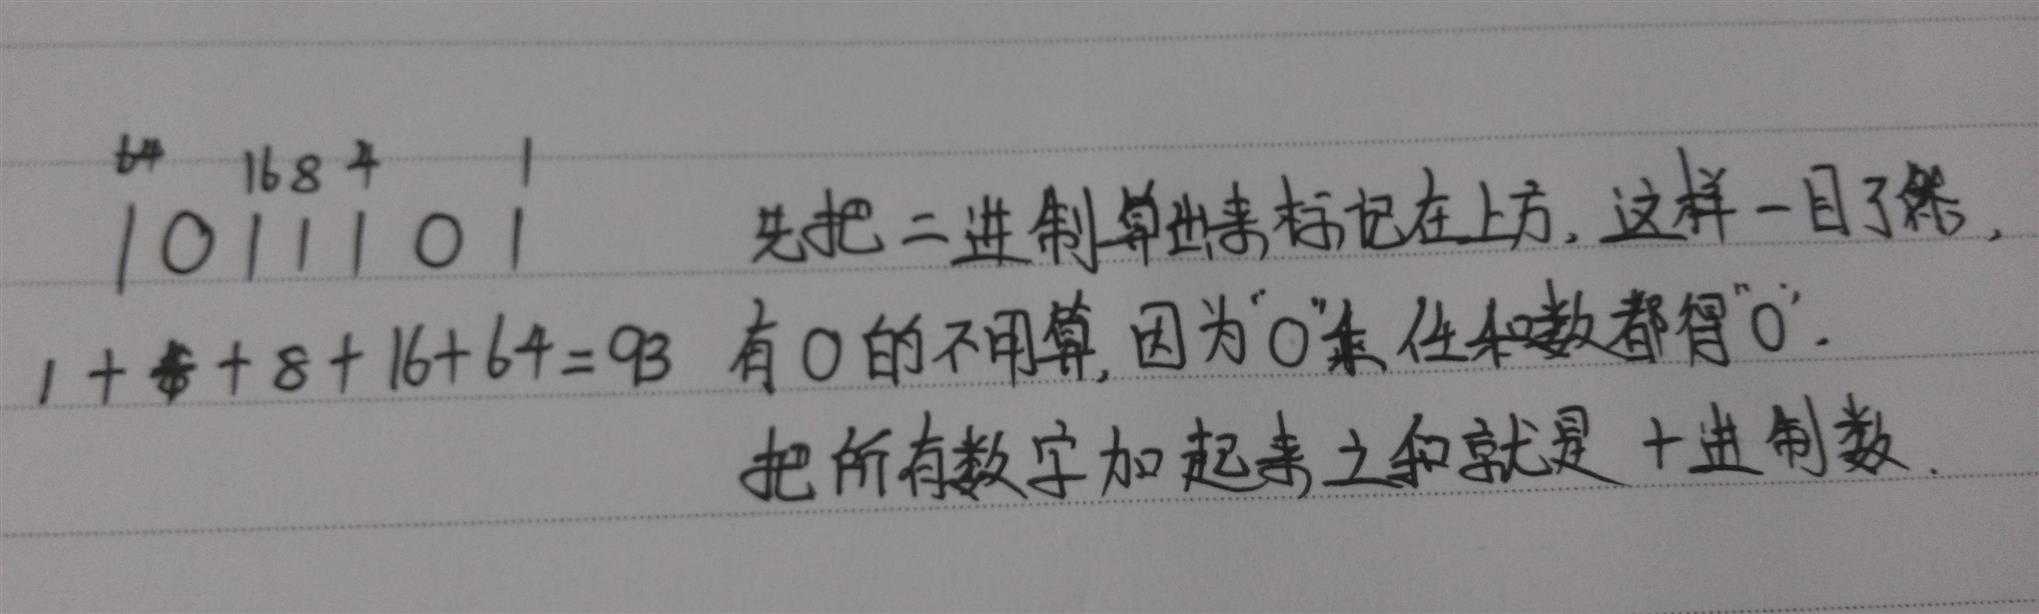 64 16 8 4 1
1 0 1 1 1 0 1 先把二进制算出来标记在上方,这样一目了然,
1 + 4 + 8 + 16 + 64 = 93 有0的不用算,因为“0”乘任和数都得“0”.
把所有数字加起来之和就是十进制数.